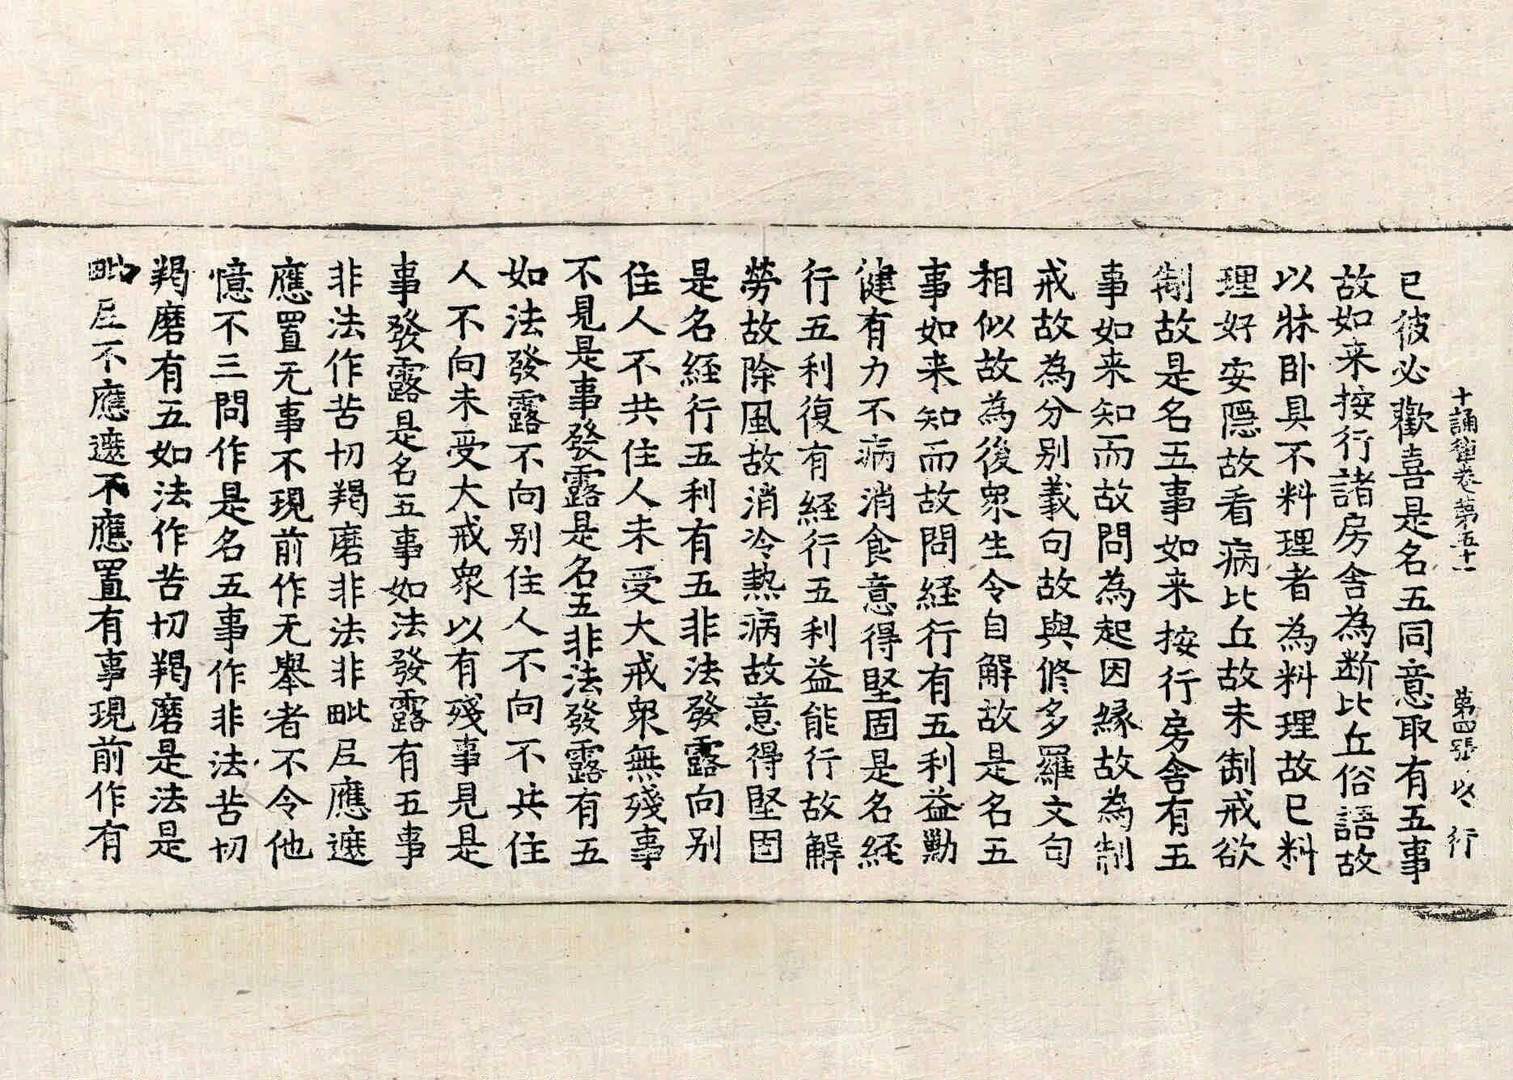 十誦律卷第五十一 第四張 以 行
已彼必歡喜是名五同意取有五事
故如来按行諸房舍為断比丘俗語故
以牀卧具不料理者為料理故已料
理好安隱故看病比丘故未制戒欲
制故是名五事如来按行房舍有五
事如来知而故問為起因縁故為制
戒故為分别義句故與修多羅文句
相似故為後衆生令自解故是名五
事如来知而故問経行有五利益勦
健有力不病消食意得堅固是名経
行五利復有経行五利益能行故解
勞故除風故消冷熱病故意得堅固
是名経行五利有五非法發露向别
住人不共住人未受大戒衆無殘事
不見是事發露是名五非法發露有五
如法發露不向别住人不向不共住
人不向未受大戒衆以有殘事見是
事發露是名五事如法發露有五事
非法作苦切羯磨非法非毗尼應遮
應置无事不現前作无舉者不令他
憶不三問作是名五事作非法苦切
羯磨有五如法作苦切羯磨是法是
毗尼不應遮不應置有事現前作有